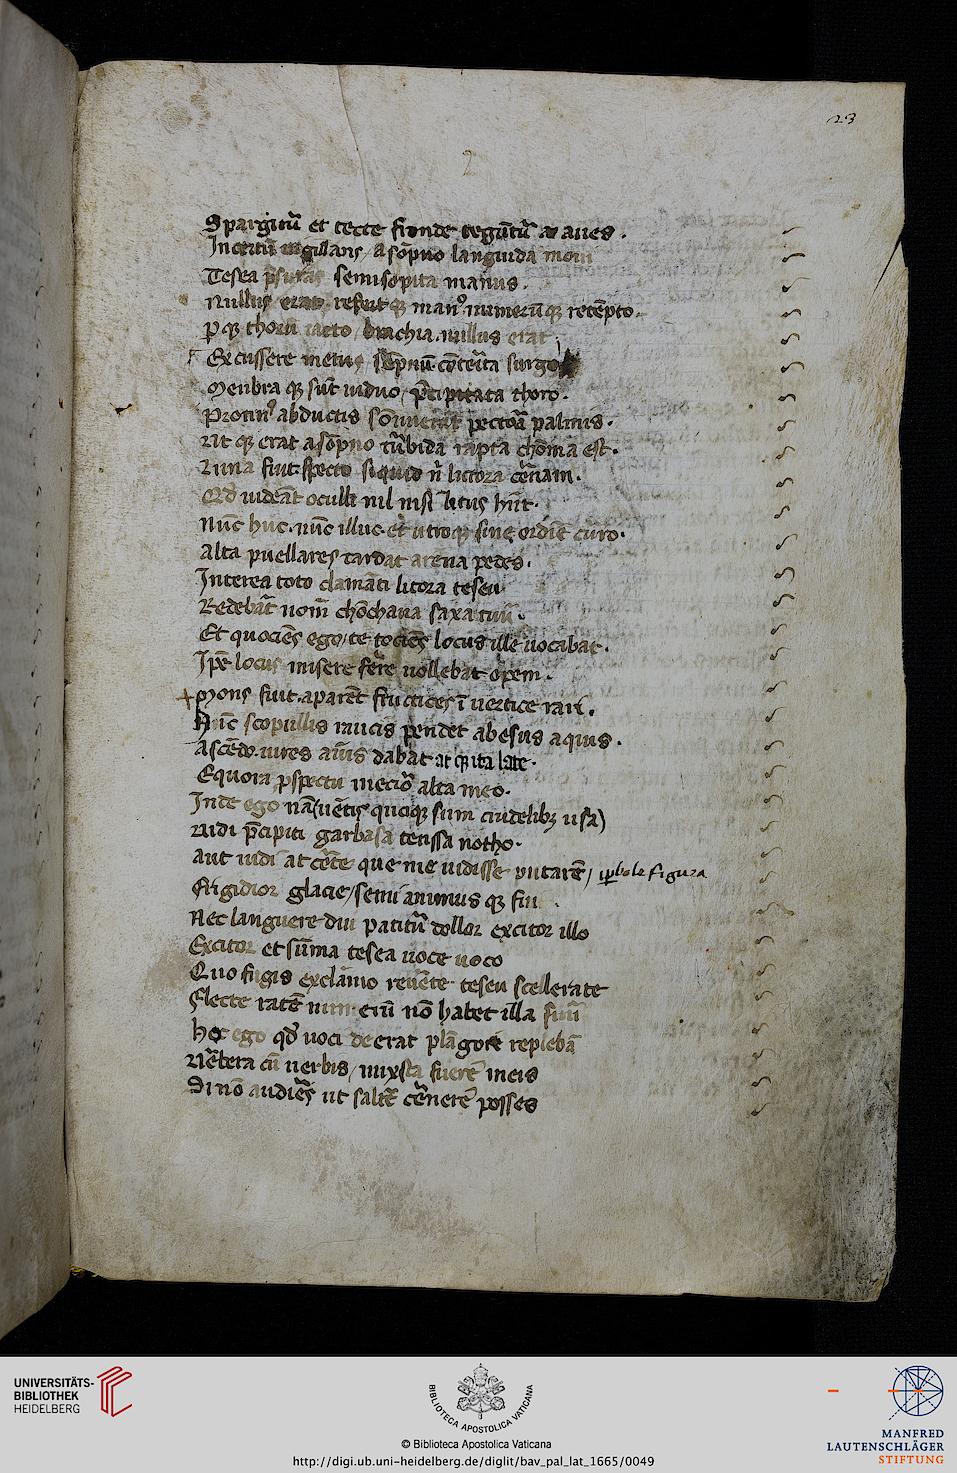 23
Spargitũ et tecte fronde tegũtũ aues.
Incertũ uigillans / a sõpno languida moui
Tesea semisopita manus.
Nullus erat. refert qꝫ man᷒ iterũ qꝫ retẽpto.
p qꝫ thorũ iacto / brachia. nullus erat
Excussere metus sõpnũ. cõterita surgo
Menbra qꝫ sũt uiduo / p̃cipitata thoro.
Protin᷒ abductis sonuerũt pectora palmis.
Ut qꝫ erat a sõpno tũbida rapta choma est.
Luna fuit. specto si quid nͥ littora cernam.
Qd uideãt oculli nil nisi litus hñt.
Nũc huc. nũc illuc. et utroqꝫ sine ordiẽ curo.
Alta puellares tardat arena pedes.
Interea toto clamãti litora teseu
Redebãt nom̃ chõchaua saxa tuũ.
Et quociẽs ego / te tociẽs locus ille uocabat.
Ipẽ locus misere ferre uollebat opem.
Mons fuit. aparẽt fructices ĩ uertice rari.
Hĩc scopullis raucis pendet abesus aquis.
Ascẽdo. uires aĩus dabat. at qꝫ ita late.
Equora ꝓspectu metior̃ alta meo.
Inde ego nã (uẽtis quoqꝫ sum crudelibꝫ usa)
Uidi p̃cipiti garbasa tenssa notho.
Aut uidi at cẽte que me uidisse putarẽ /
ipbole figura
Frigidior glacie / semi animus qꝫ fui.
Nec languere diu patitũ dollor excitor illo
Excitor et sũma tesea uoce uoco
Quo fugis exclamo reuẽte teseu scellerate
Flecte ratẽ nũm. eũ nõ habet illa suũ
Hec ego qd uoci deerat plãgore replebã
Uerbera cũ uerbis / mixsta fuerẽ meis
Si nõ audires ut saltẽ cernere posses
UNIVERSITÄTS-
BIBLIOTHEK
HEIDELBERG
BIBLIOTECA APOSTOLICA VATICANA
© Biblioteca Apostolica Vaticana
http://digi.ub.uni-heidelberg.de/diglit/bav_pal_lat_1665/0049
MANFRED
LAUTENSCHLÄGER
STIFTUNG